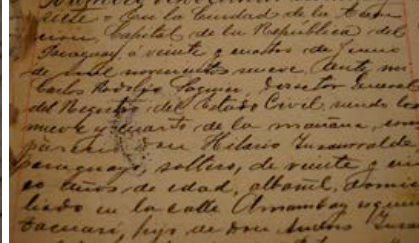 siete = En la Ciudad de la Asun-
cion, Capital de la República del
Paraguay á veinte y cuatro de Junio
de mil novecientos nueve, Ante mi
Carlos Rodrigo, Director General
del Registro del Estado Civil, siendo las
nueve y cuarto de la mañana, com
pareció Don Hilario Insaurralde,
paraguayo, soltero, de veinte y cin
co años de edad, albañil, domici
liado en la calle Amambay esquina
Tacuarí, hijo de don